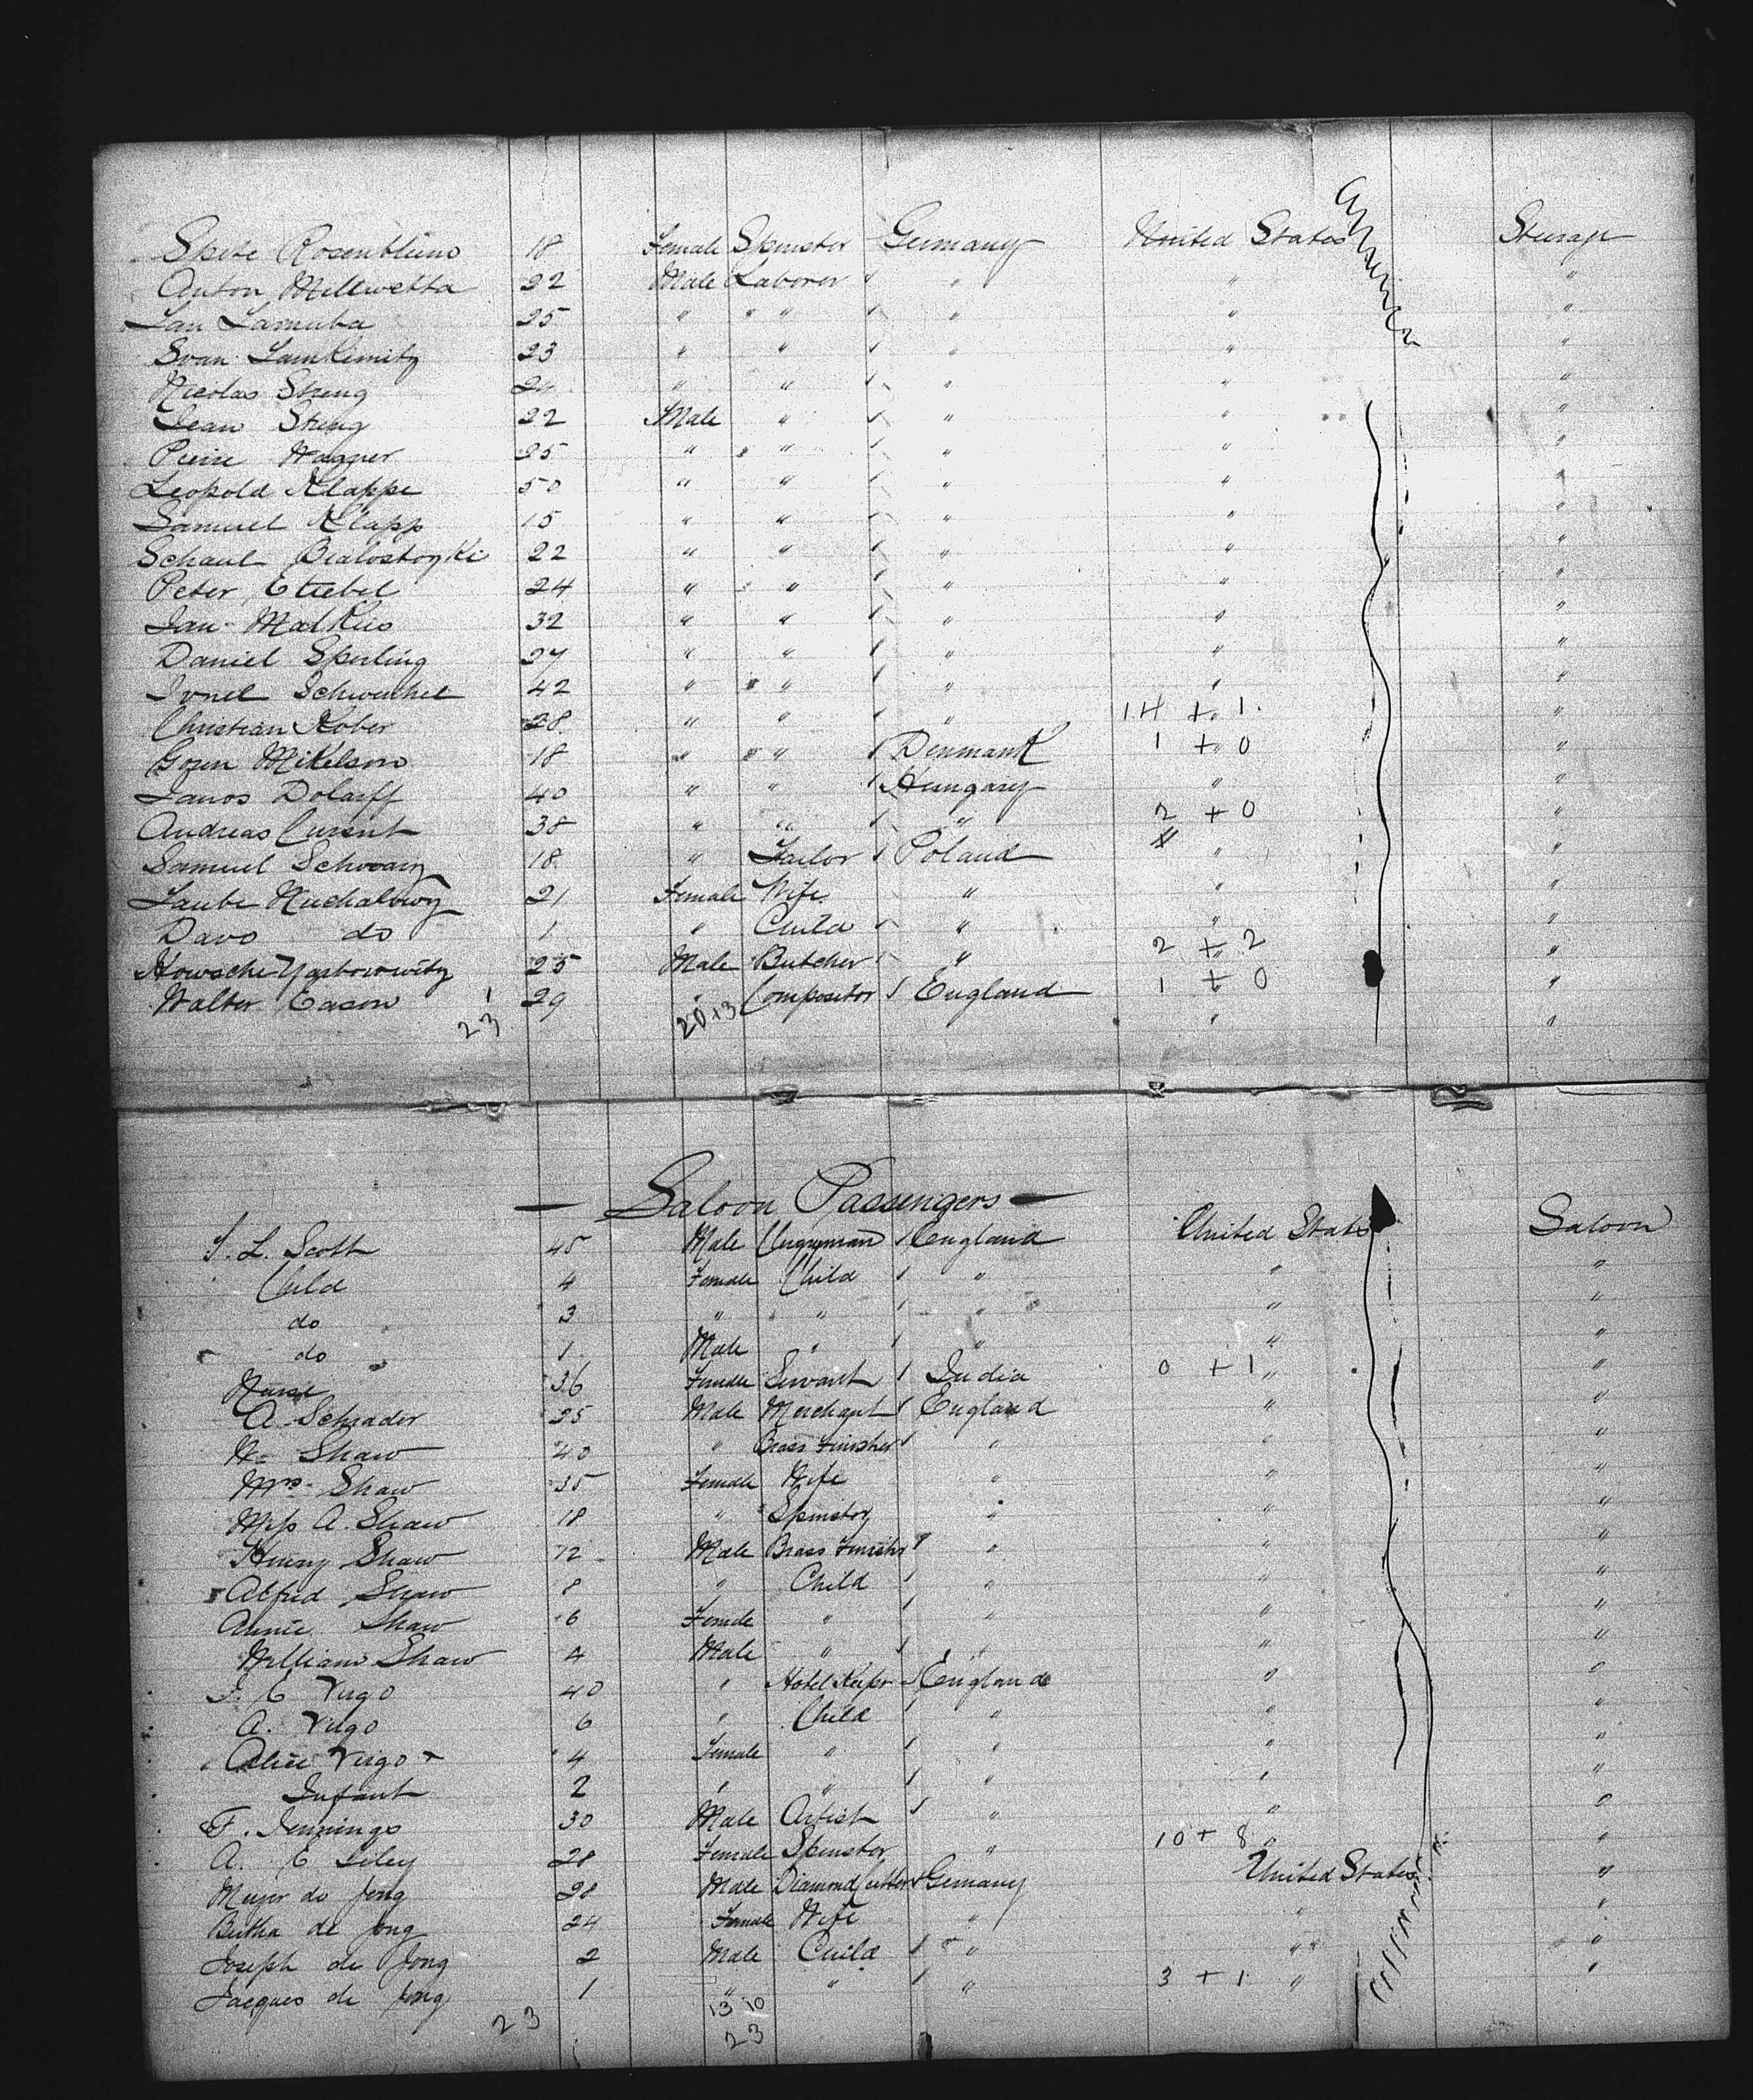 Rosenblum 18 Female Spinster Germany United States Steerage
Anton Millwetta 22 Male Laborer " " "
Jan Lamuba 25 " " " " "
23 " " " " "
Nicolas Streng " " " " "
Jean Streng 22 Male " " " "
Pierre Wagner 25 " " " " "
Leopold Klappe 50 " " " " "
Samuel Klapp 15 " " " " "
Schaul Bialostozki 22 " " " " "
Peter 24 " " " " "
Jan 32 " " " " "
Daniel Sperling 27 " " " " "
42 " " " " "
Christian Kober 28 " " " 14 + 1 "
Mikelson 18 " " Denmark 1 + 0 "
Janos 40 " " Hungary " "
Andreas 38 " " " 2 + 0 "
Samuel Schwarz 18 " Tailor Poland " "
Taube 21 Female Wife " " "
Davo do 1 " Child " " "
25 Male Butcher " 2 + 2 "
Walter Eason 1 29 " Compositor England 1 + 0 "
23 20+3 " "
— Saloon Passengers —
Scott 45 Male Clergyman England United States Saloon
Child 4 Female Child " " "
do 3 " " " " "
do 1 Male " " " "
Nurse 36 Female Servant India 0 + 1 " "
A. Schrader 25 Male Merchant England " "
Shaw 40 " Brass Finisher " " "
Mrs Shaw 35 Female Wife " " "
Miss A. Shaw 18 " Spinster " " "
Henry Shaw 12 Male Brass Finisher " " "
Alfred Shaw 8 " Child " " "
Annie Shaw 6 Female " " " "
William Shaw 4 Male " " " "
Virgo 40 " Hotel Keeper England " "
A. Virgo 6 " Child " " "
Alice Virgo + 4 Female " " " "
Infant 2 " " " " "
F. Jennings 30 Male Artist " " "
A. E 28 Female Spinster " 10 + 8 " "
Meyer de Jong 28 Male Diamond Cutter Germany United States "
Bertha de Jong 24 Female Wife " " "
Joseph de Jong 2 Male Child " " "
Jacques de Jong 1 " " " 3 + 1 " "
23 13 10
23